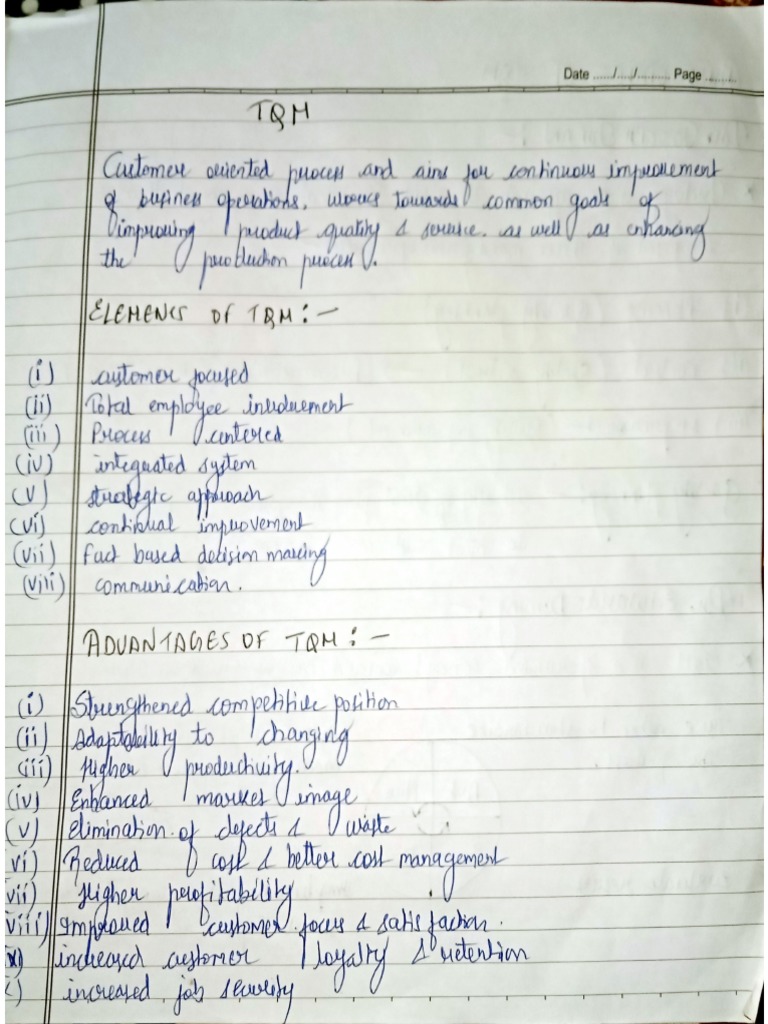 Date ....../..../.......... Page .........
TQM
Customer oriented process and aims for continuous improvement
of business operations, works towards common goals of
improving product quality & service. as well as enhancing
the production process.
ELEMENTS OF TQM:-
(i) customer focused
(ii) Total employee involvement
(iii) Process centered
(iv) integrated system
(v) strategic approach
(vi) continual improvement
(vii) Fact based decision making
(viii) communication.
ADVANTAGES OF TQM:-
(i) Strengthened competitive position
(ii) Adaptability to changing
(iii) Higher productivity.
(iv) Enhanced market image
(v) elimination of defects & waste
vi) Reduced cost & better cost management
vii) Higher profitability
viii) Improved customer focus & satisfaction.
x) increased customer loyalty & retention
) increased job security